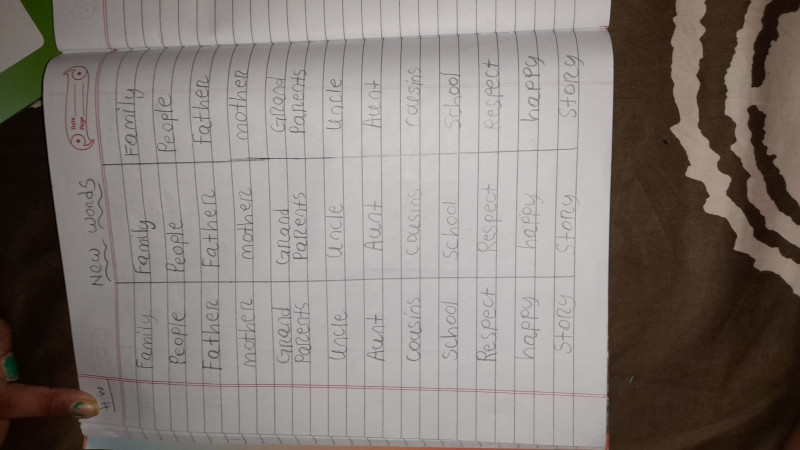 HW
New Words
Date
Page
Family Family Family
People People People
Father Father Father
mother mother mother
Grand Grand Grand
Parents Parents Parents
Uncle Uncle Uncle
Aunt Aunt Aunt
cousins cousins
School School School
Respect Respect Respect
happy happy happy
Story Story Story